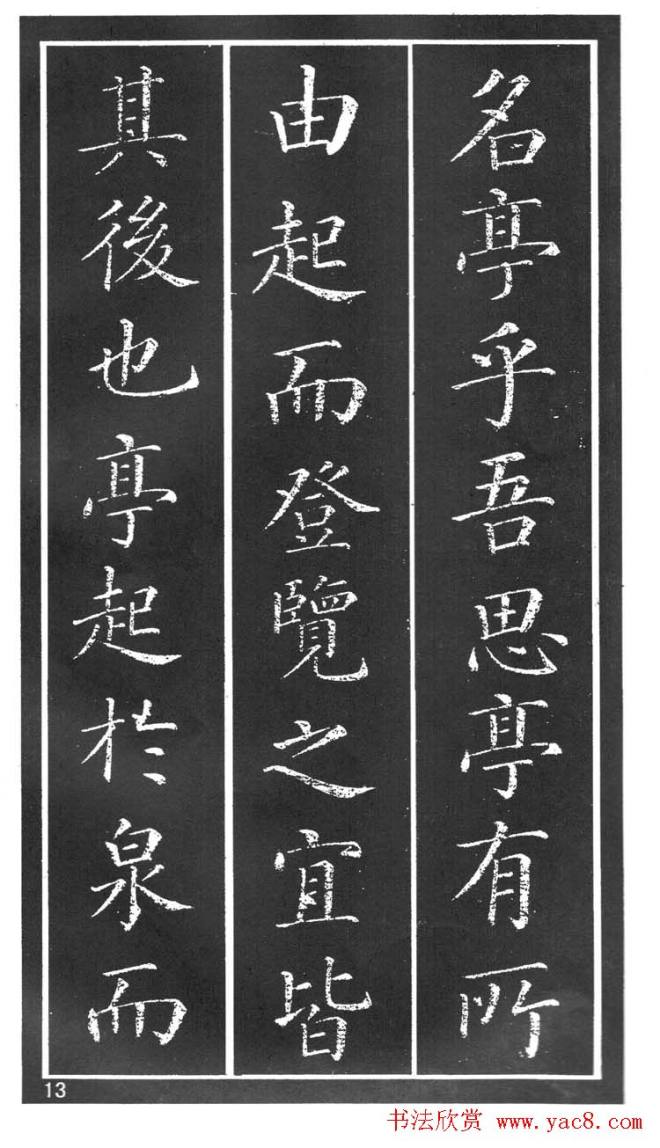 名亭乎吾思亭有所
由起而登覽之宜皆
其後也亭起於泉而
13
书法欣赏 www.yac8.com